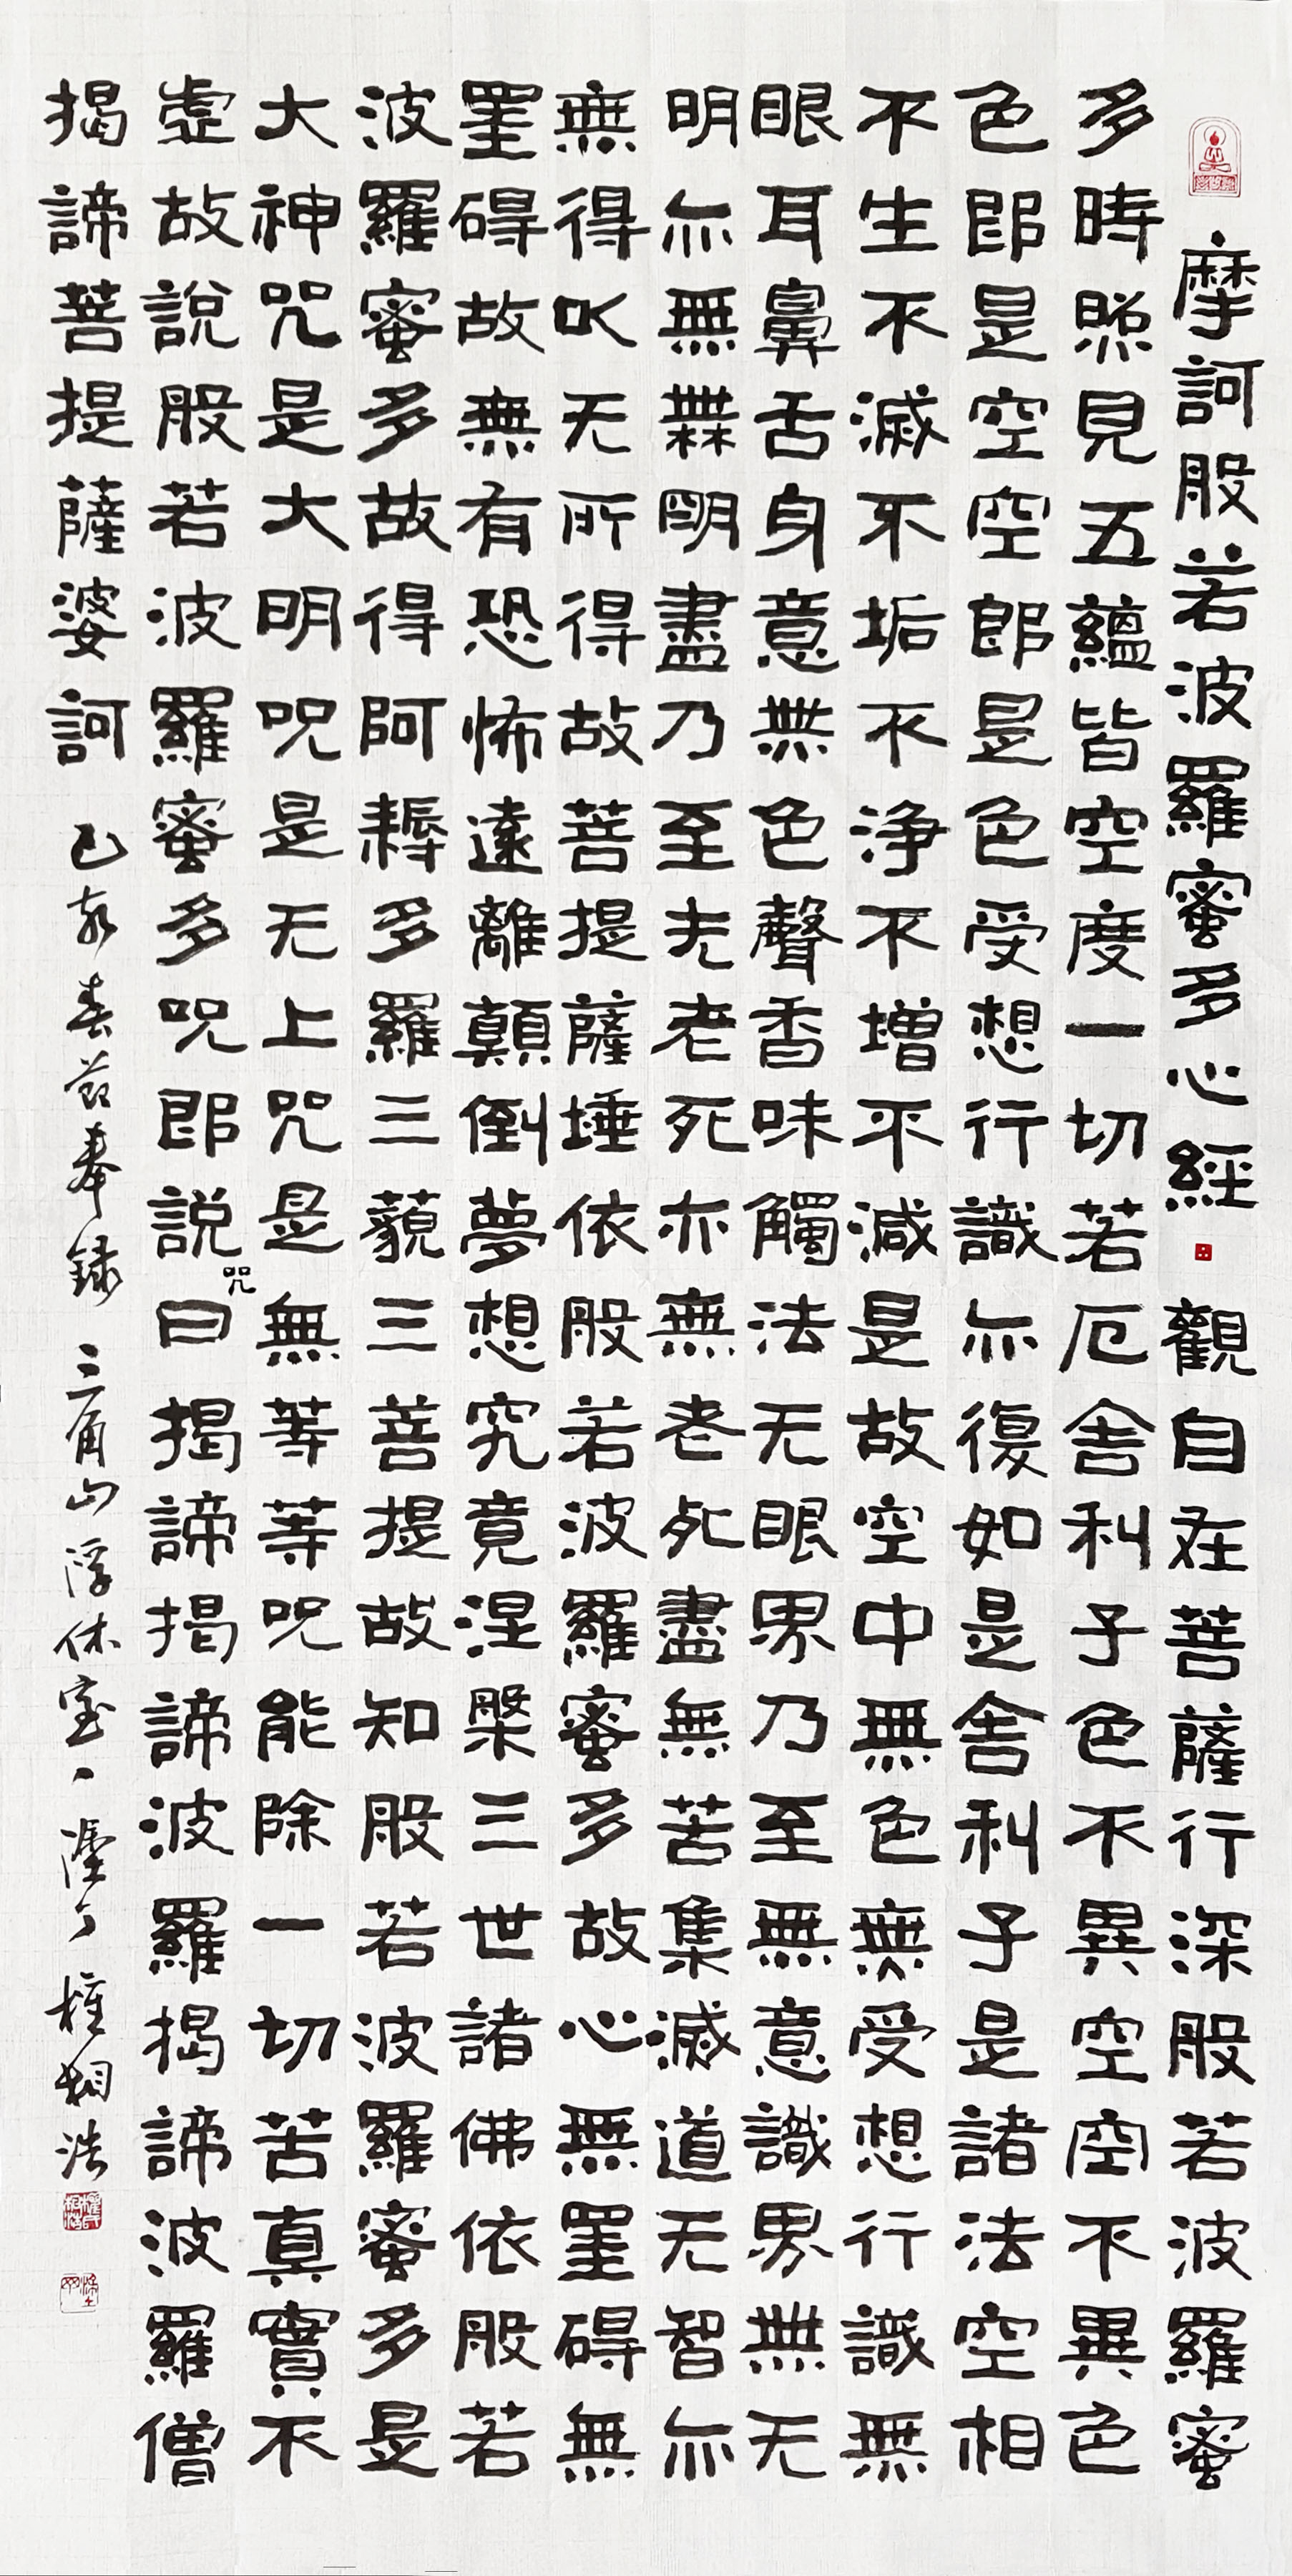 摩訶般若波羅蜜多心經 觀自在菩薩行深般若波羅蜜
多時照見五蘊皆空度一切苦厄舍利子色不異空空不異色
色即是空空即是色受想行識亦復如是舍利子是諸法空相
不生不滅不垢不淨不增不減是故空中無色無受想行識無
眼耳鼻舌身意無色聲香味觸法无眼界乃至無意識界無无
明亦無無明盡乃至无老死亦無老死盡無苦集滅道无智亦
無得以无所得故菩提薩埵依般若波羅蜜多故心無罣碍無
罣碍故無有恐怖遠離顛倒夢想究竟涅槃三世諸佛依般若
波羅蜜多故得阿耨多羅三藐三菩提故知般若波羅蜜多是
大神咒是大明呪是无上咒是無等等呪能除一切苦真實不
虛故說般若波羅蜜多呪即説咒曰揭諦揭諦波羅揭諦波羅僧
揭諦菩提薩婆訶 己亥春節奉録 三角山浮休室 塗丁 權相浩